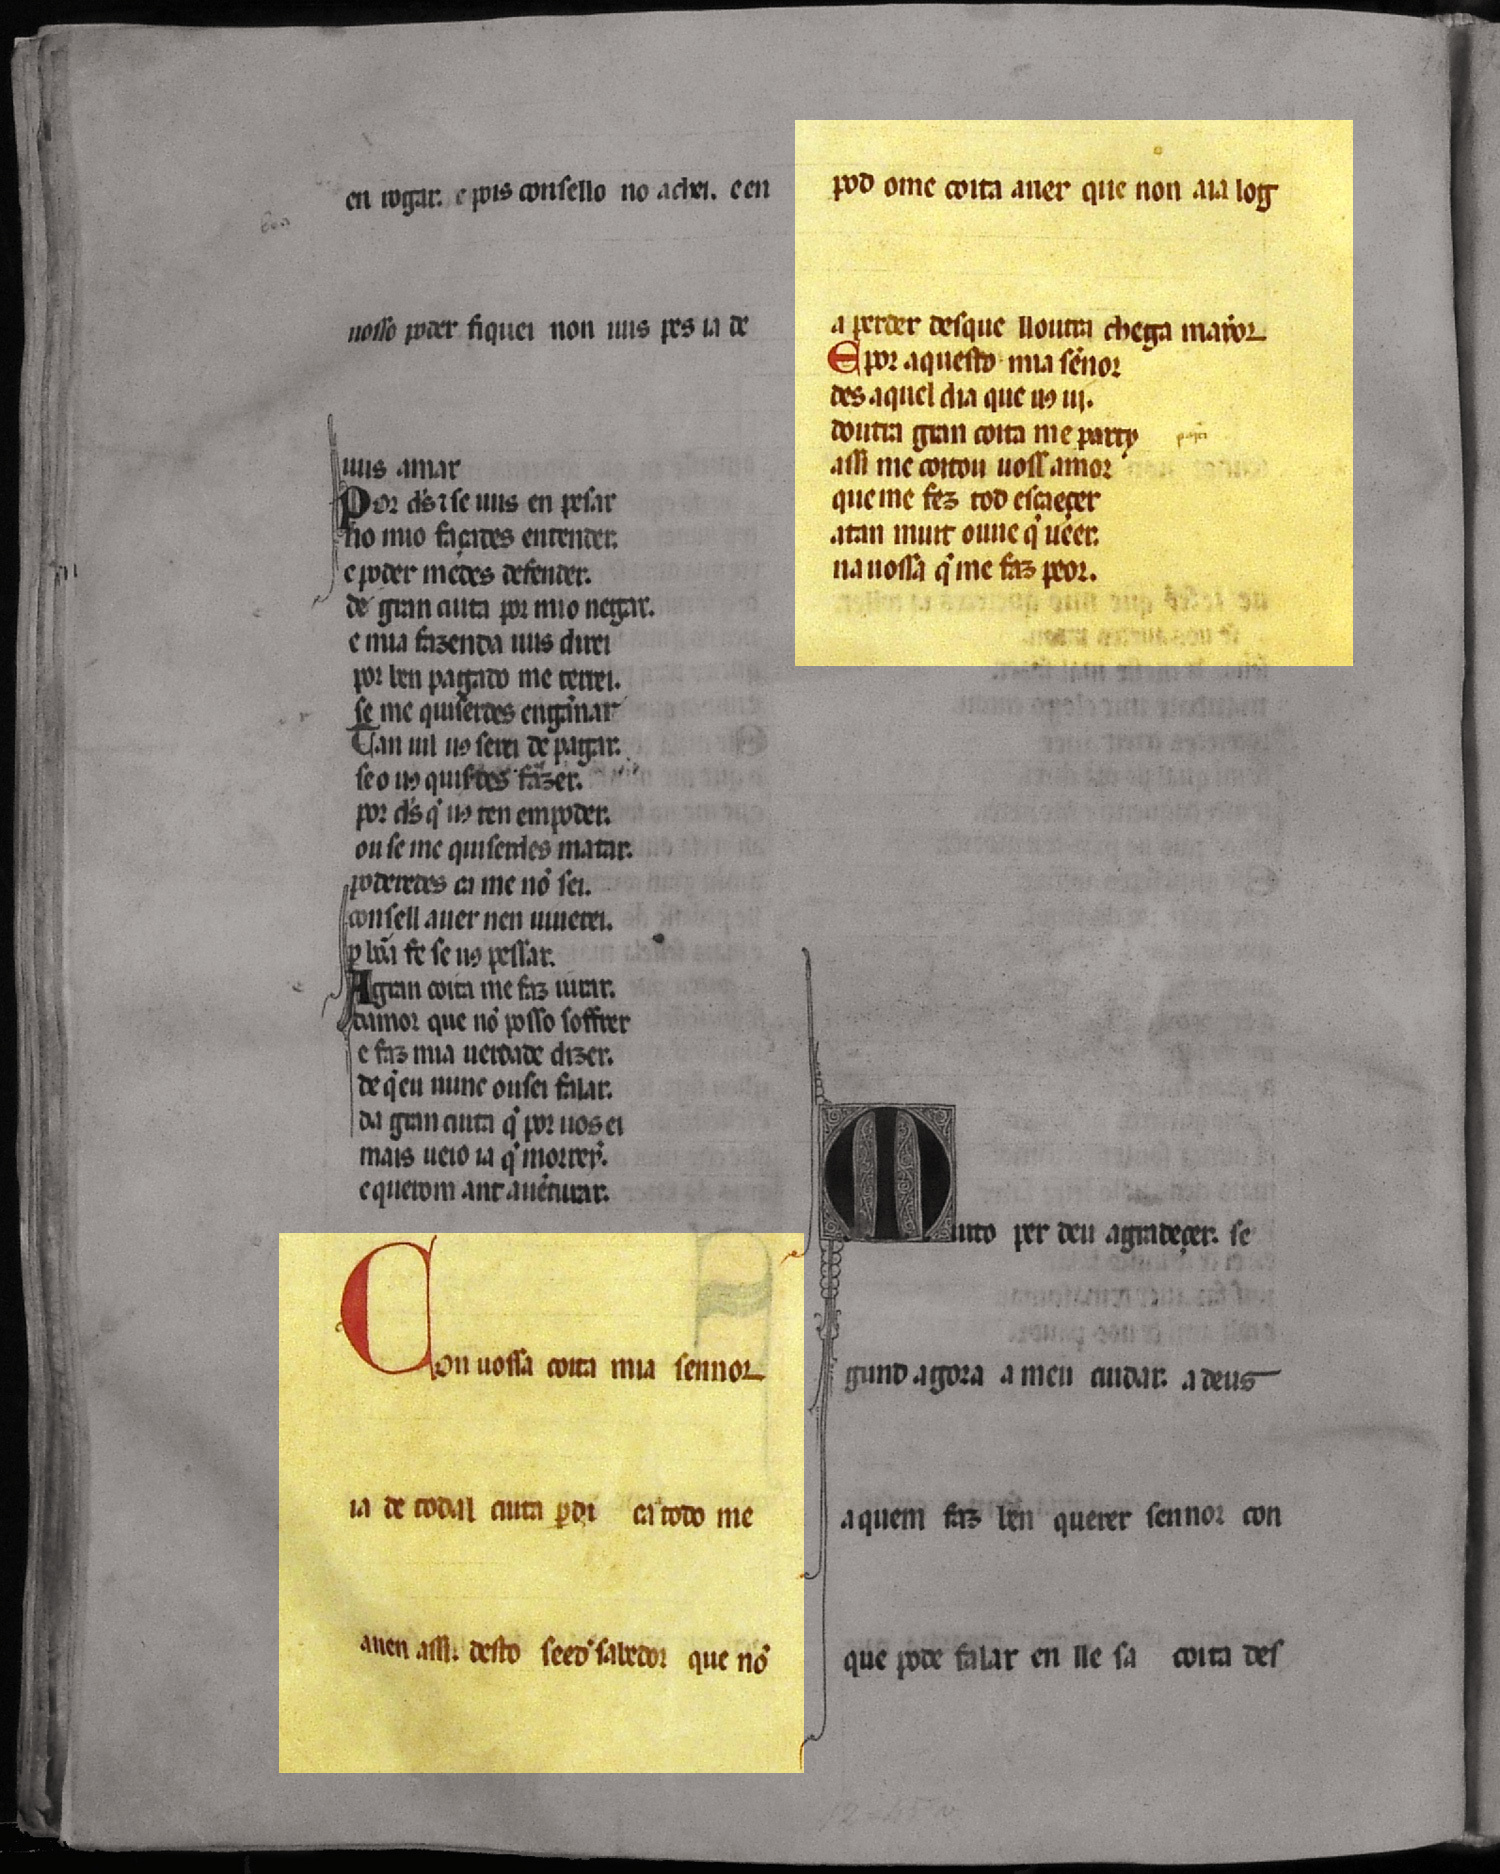 en rogar. e pois consello no achei. e en
uosso poder fiquei non uus pes ia de
uus amar
Por d̃s ⁊ se uus en pesar
no mio façades entender.
e poder medes defender.
de gran cuita por mio negar.
e mia fazenda uus direi
por ben pagado me terrei.
se me quiserdes enganar
Tan uil uꝯ serei de pagar.
se o uꝯ quis̃des fazer.
por d̃s q̃ uꝯ ten em poder.
ou se me quiserdes matar.
poderedes ca me nõ sei.
consell auer nen uiuerei.
ꝑ bõa fe se uꝯ pessar.
A gran coita me faz iurar.
damor que nõ posso soffrer
e faz mia uerdade dizer.
de q̃ eu nunc ousei falar.
da gran cuita q̃ por uos ei
mais ueio ia q̃ morrerẏ.
e querom ant auẽturar.
Con uossa coita mia sennor
ia de todal cuita ꝑdi ca todo me
auen assi. desto seed sabedor que nõ
pod ome coita auer que non aia log
a perder desque lloutra chega maẏor
E por aquesto mia sẽnor
des aquel dia que uꝯ ui.
doutra gran coita me party
assi me coitou uoss amor
que me fez tod escaeçer
atan muit oune q̃ ueer.
na uossa q̃ me faz peor.
Muito per deu agradeçer. se
gund agora a meu cuidar. a deus
a quem faz ben querer sennor con
que pode falar en lle sa coita des